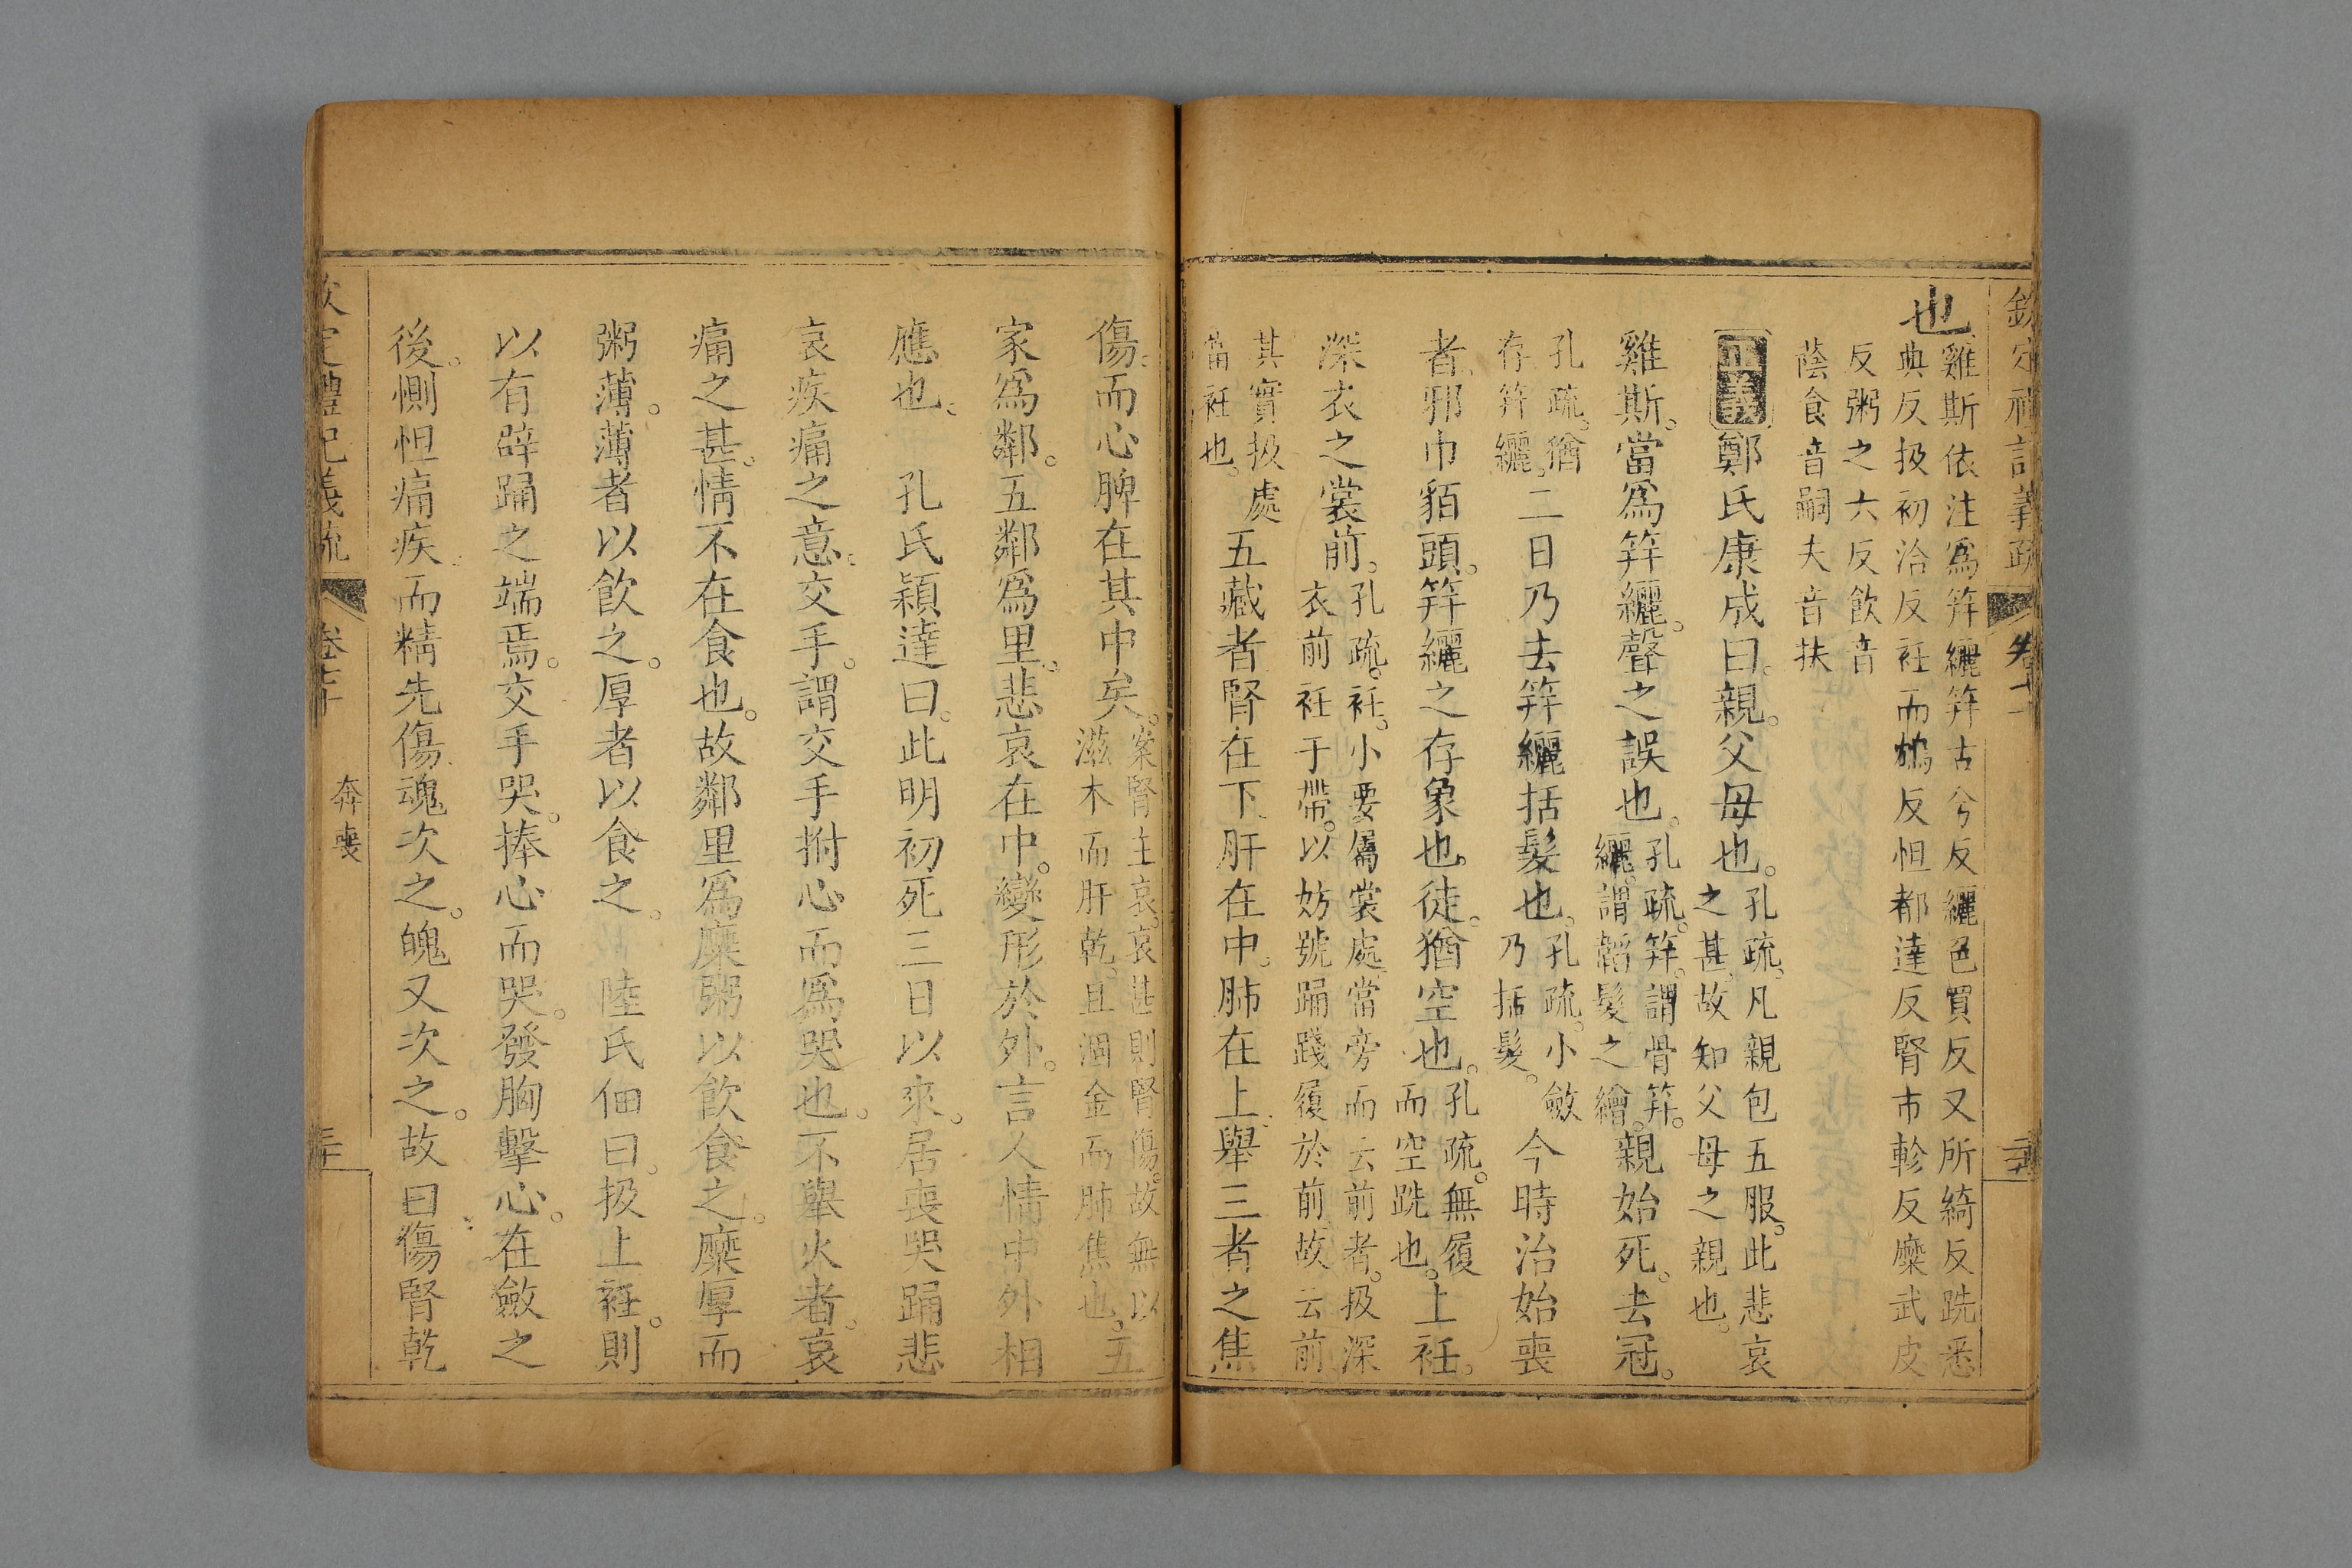 欽定禮記義疏 卷七十
也雞斯依注爲笄纚笄古兮反纚色買反又所綺反跣悉
典反扱初洽反衽而鴆反怛都達反腎市軫反糜武皮
反粥之六反飲音
蔭食音嗣夫音扶
正義鄭氏康成曰親父母也孔疏凡親包五服此悲哀
之甚故知父母之親也
雞斯當爲笄纚聲之誤也孔疏笄謂骨笄
纚謂韜髮之繒親始死去冠
孔疏猶
存笄纚二日乃去笄纚括髮也孔疏小斂
乃括髮今時治始喪
者邪巾貊頭笄纚之存象也徒猶空也孔疏無履
而空跣也上衽
深衣之裳前孔疏衽小要屬裳處當旁而云前者扱深
衣前衽于帶以妨號踊踐履於前故云前
其實扱處
當衽也五藏者腎在下肝在中肺在上舉三者之焦
傷而心脾在其中矣案腎主哀哀甚則腎傷故無以
滋木而肝乾且涸金而肺焦也五
家爲鄰五鄰爲里悲哀在中變形於外言人情中外相
應也 孔氏穎達曰此明初死三日以來居喪哭踊悲
哀疾痛之意交手謂交手拊心而爲哭也不舉火者哀
痛之甚情不在食也故鄰里爲糜粥以飲食之糜厚而
粥薄薄者以飲之厚者以食之 陸氏佃曰扱上衽則
以有辟踊之端焉交手哭捧心而哭發胸擊心在斂之
後惻怛痛疾而精先傷魂次之魄又次之故曰傷腎乾
欽定禮記義疏 卷七十 奔喪